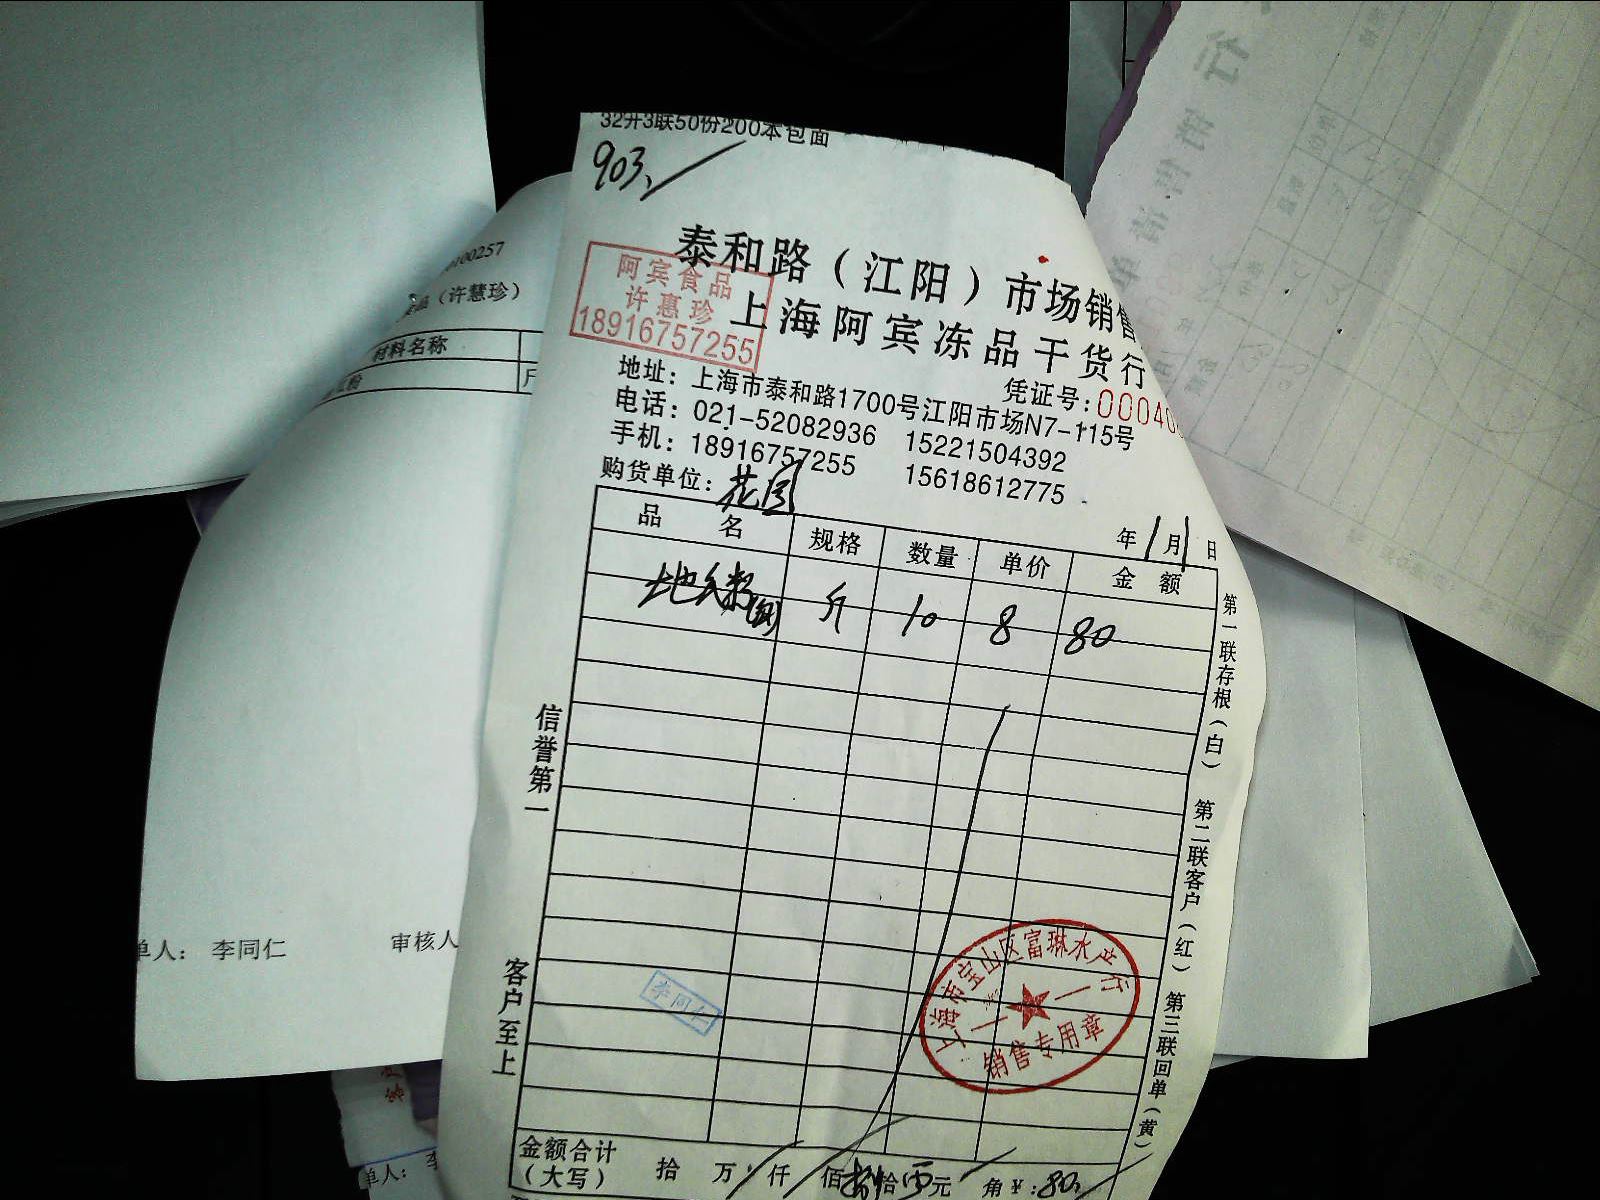 32开3联50份200本包面
903
泰和路（江阳）市场销售
上海阿宾冻品干货行
阿宾食品
许惠珍
18916757255
凭证号：00040
地址：上海市泰和路1700号江阳市场N7-115号
电话：021-52082936 15221504392
手机：18916757255 15618612775
购货单位：花园
年1月1日
品名 规格 数量 单价 金额
斤 10 8 80
信誉第一
客户至上
第一联存根（白） 第二联客户（红） 第三联回单（黄）
李同仁
上海市宝山区富琳水产行
销售专用章
金额合计
（大写） 拾 万 仟 佰 捌拾 元 角 ¥：80
00257
（许慧珍）
材料名称
单人： 李同仁 审核人
单人：